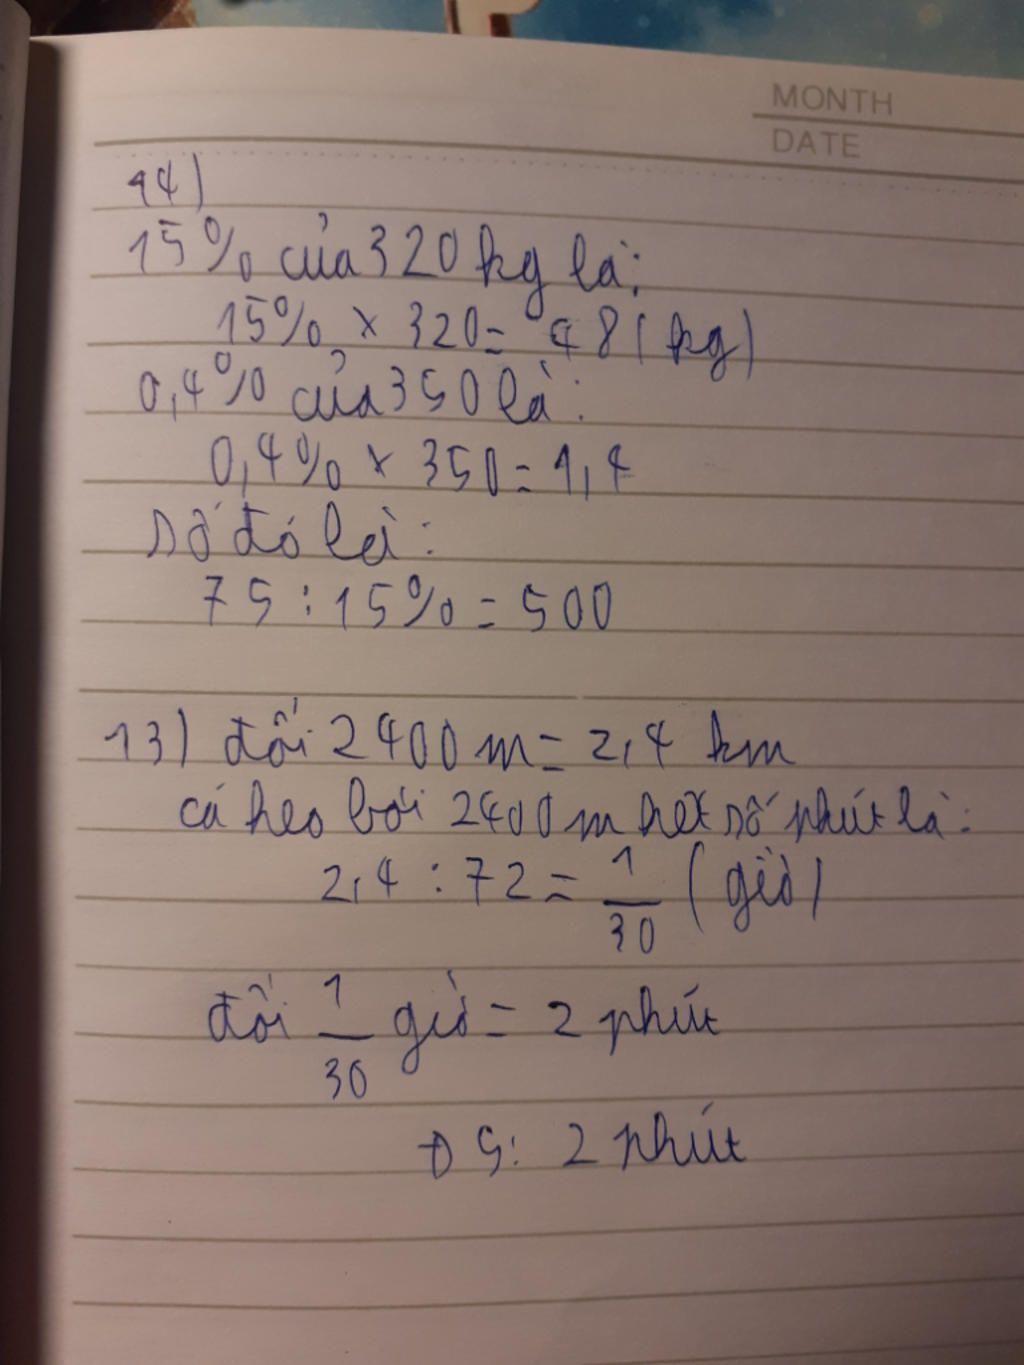 MONTH
DATE
14)
15% của 320 kg là:
15% × 320 = 48 (kg)
0,4% của 350 là:
0,4% × 350 = 1,4
số đó là:
75 : 15% = 500
13) đổi 2400 m = 2,4 km
cá heo bơi 2400 m hết số phút là:
2,4 : 72 = 1/30 (giờ)
đổi 1/30 giờ = 2 phút
ĐS: 2 phút